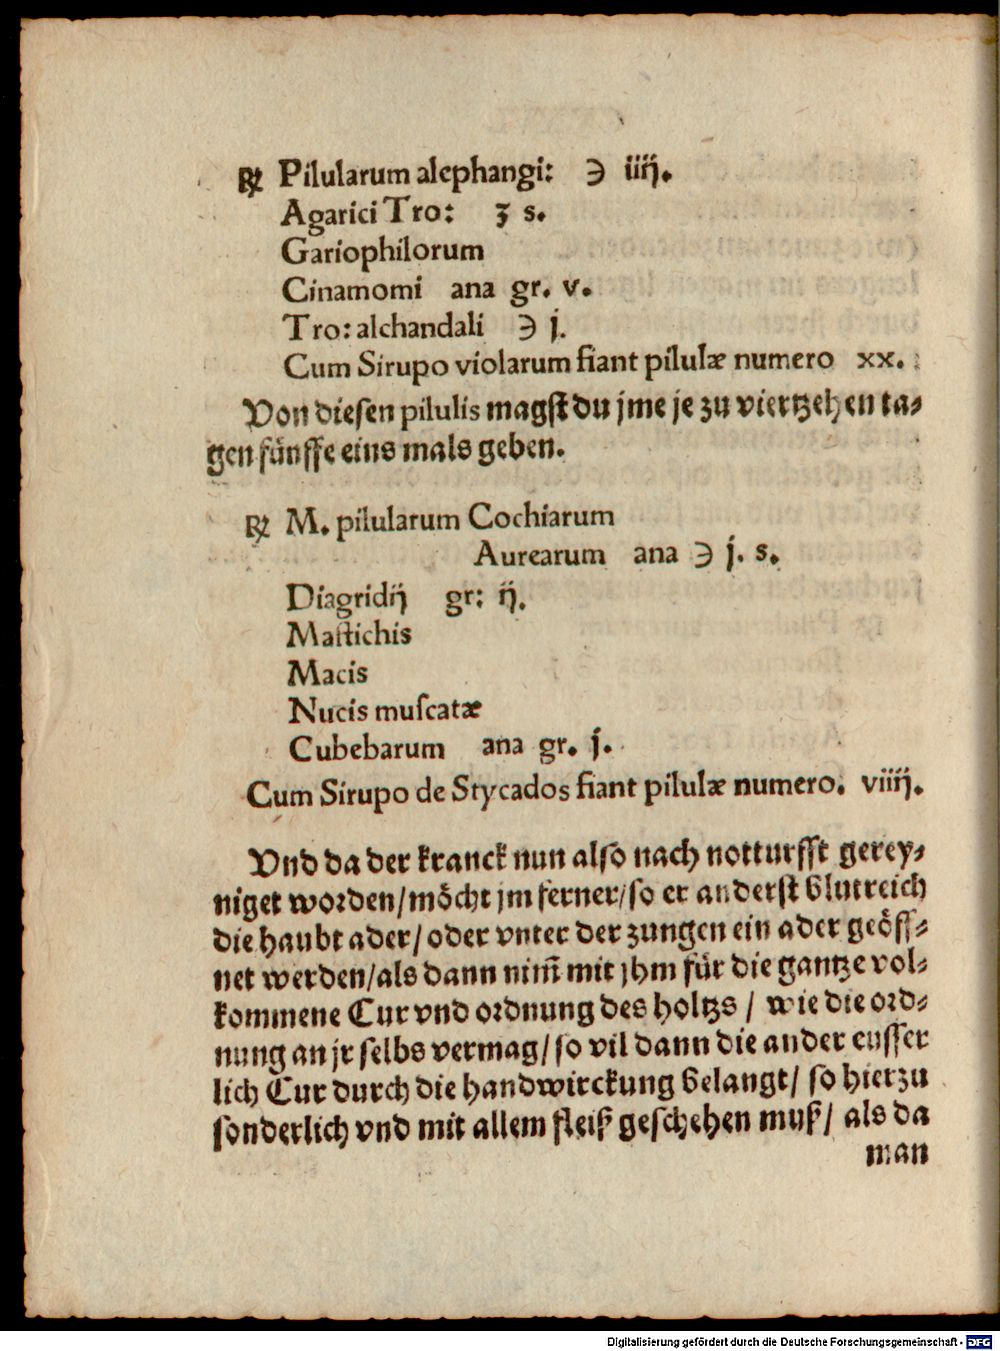 ℞ Pilularum alephangi: ℈ iiij.
Agarici Tro: ʒ s.
Gariophilorum
Cinamomi ana gr. v.
Tro: alchandali ℈ j.
Cum Sirupo violarum fiant pilulæ numero xx.
Von diesen pilulis magst du jme je zu viertzehen ta⸗
gen fünffe eins mals geben.
℞ M. pilularum Cochiarum
Aurearum ana ℈ j. s.
Diagridij gr: ij.
Mastichis
Macis
Nucis muſcatæ
Cubebarum ana gr. j.
Cum Sirupo de Stycados fiant pilulæ numero. viiij.
Vnd da der kranck nun also nach notturfft gerey⸗
niget worden/möcht jm ferner/so er anderst blutreich
die haubt ader/oder vnter der zungen ein ader geöff⸗
net werden/als dann nim̃ mit jhm für die gantze vol⸗
kommene Cur vnd ordnung des holtzs / wie die ord⸗
nung an jr selbs vermag/so vil dann die ander eusser
lich Cur durch die handwirckung belangt/ so hierzu
sonderlich vnd mit allem fleiß geschehen muß/ als da
man
Digitalisierung gefördert durch die Deutsche Forschungsgemeinschaft - DFG